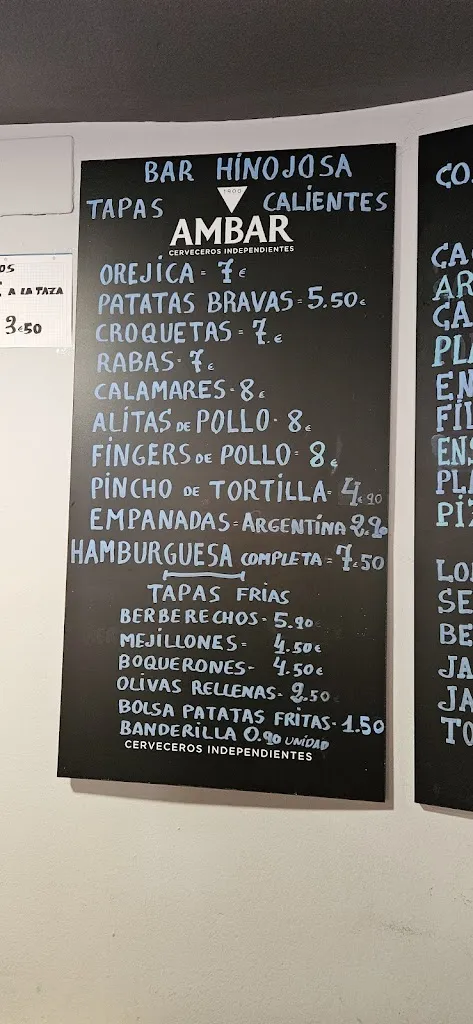 BAR HINOJOSA
TAPAS CALIENTES
1900
AMBAR
CERVECEROS INDEPENDIENTES
OREJICA = 7€
PATATAS BRAVAS = 5.50€
CROQUETAS = 7.€
RABAS - 7€
CALAMARES - 8€
ALITAS DE POLLO - 8€
FINGERS DE POLLO = 8€
PINCHO DE TORTILLA = 4€90
EMPANADAS = ARGENTINA 2€90
HAMBURGUESA COMPLETA = 7€50
TAPAS FRIAS
BERBERECHOS - 5.90
MEJILLONES - 4.50€
BOQUERONES - 4.50€
OLIVAS RELLENAS - 2.50
BOLSA PATATAS FRITAS - 1.50
BANDERILLA 0.90 UNIDAD
CERVECEROS INDEPENDIENTES
OS
A LA TAZA
3€50
CO
CA
AR
CA
PLA
EN
FIL
ENS
PLA
PIZ
LO
SE
BE
JA
JA
TO